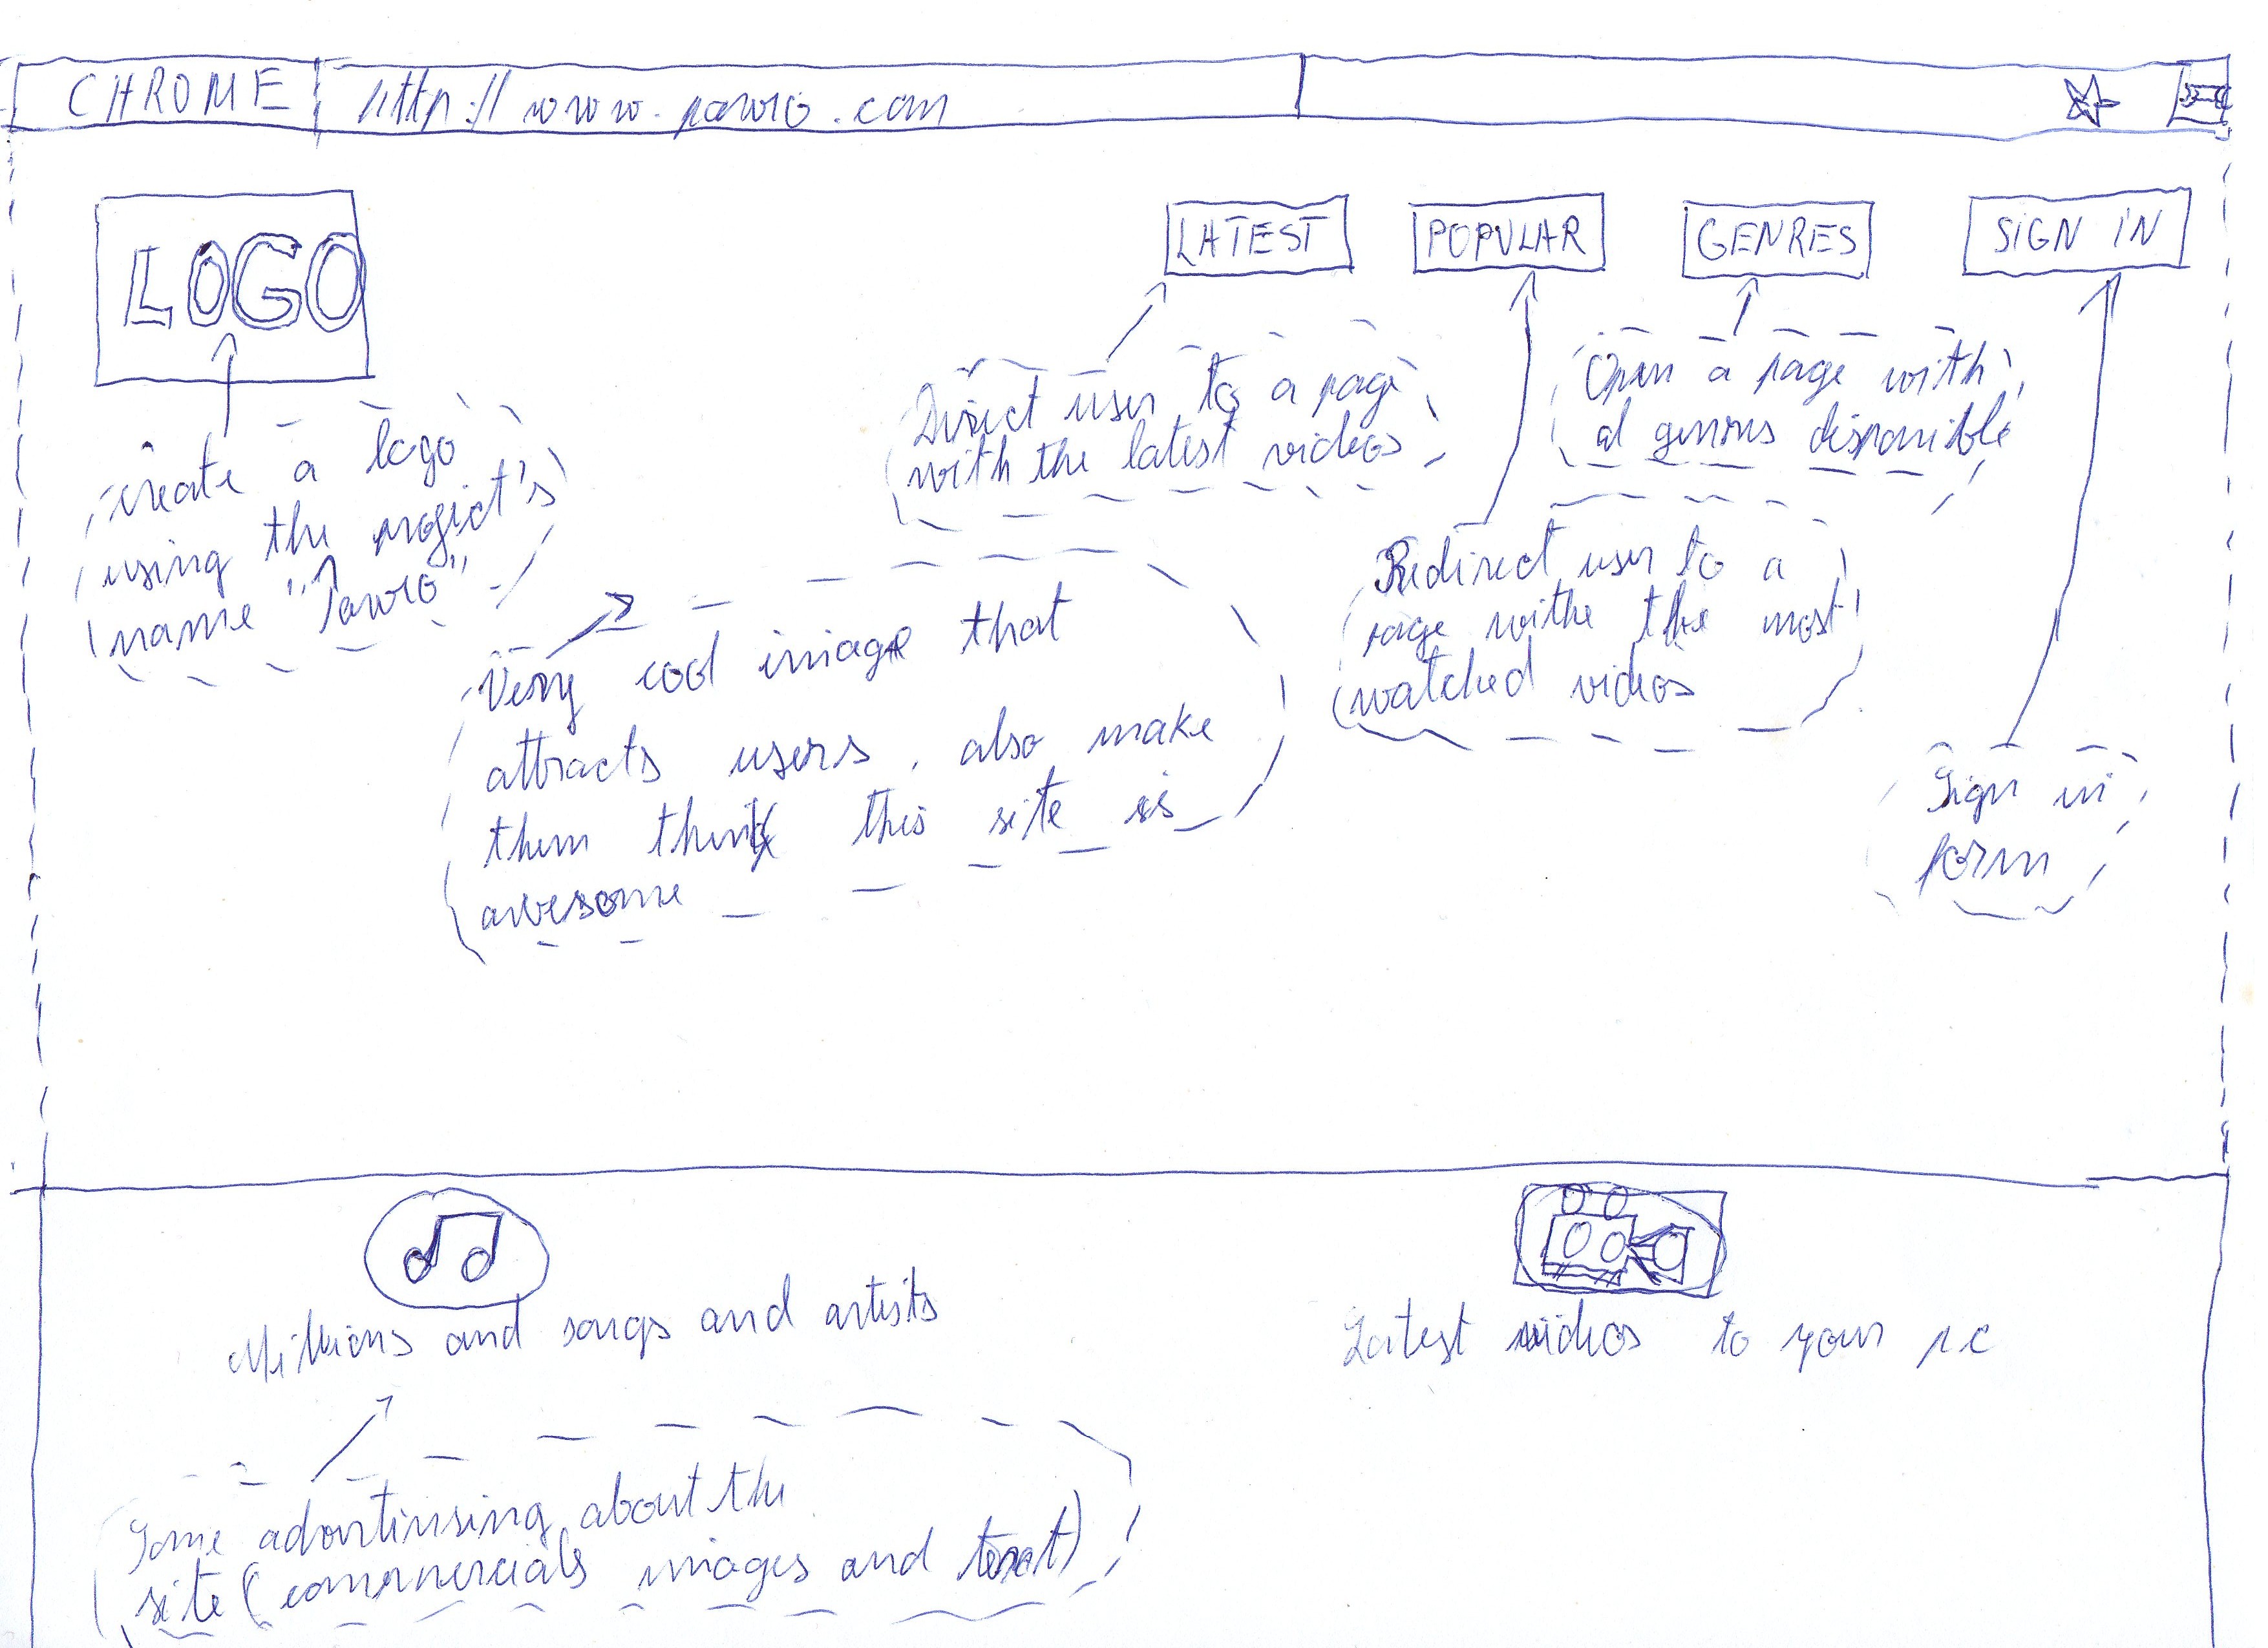 CHROME http://www.pawro.com
LOGO
LATEST POPULAR GENRES SIGN IN
create a logo
using the project's
name "Pawro"
Direct user to a page
with the latest videos
Open a page with
al genres disponible
Redirect user to a
page withe the most
watched videos
Very cool image that
attracts users, also make
them think this site is
awesome
Sign in
form
Millions and songs and artists
Latest videos to your pc
Some advertinsing about the
site (commercials images and text)